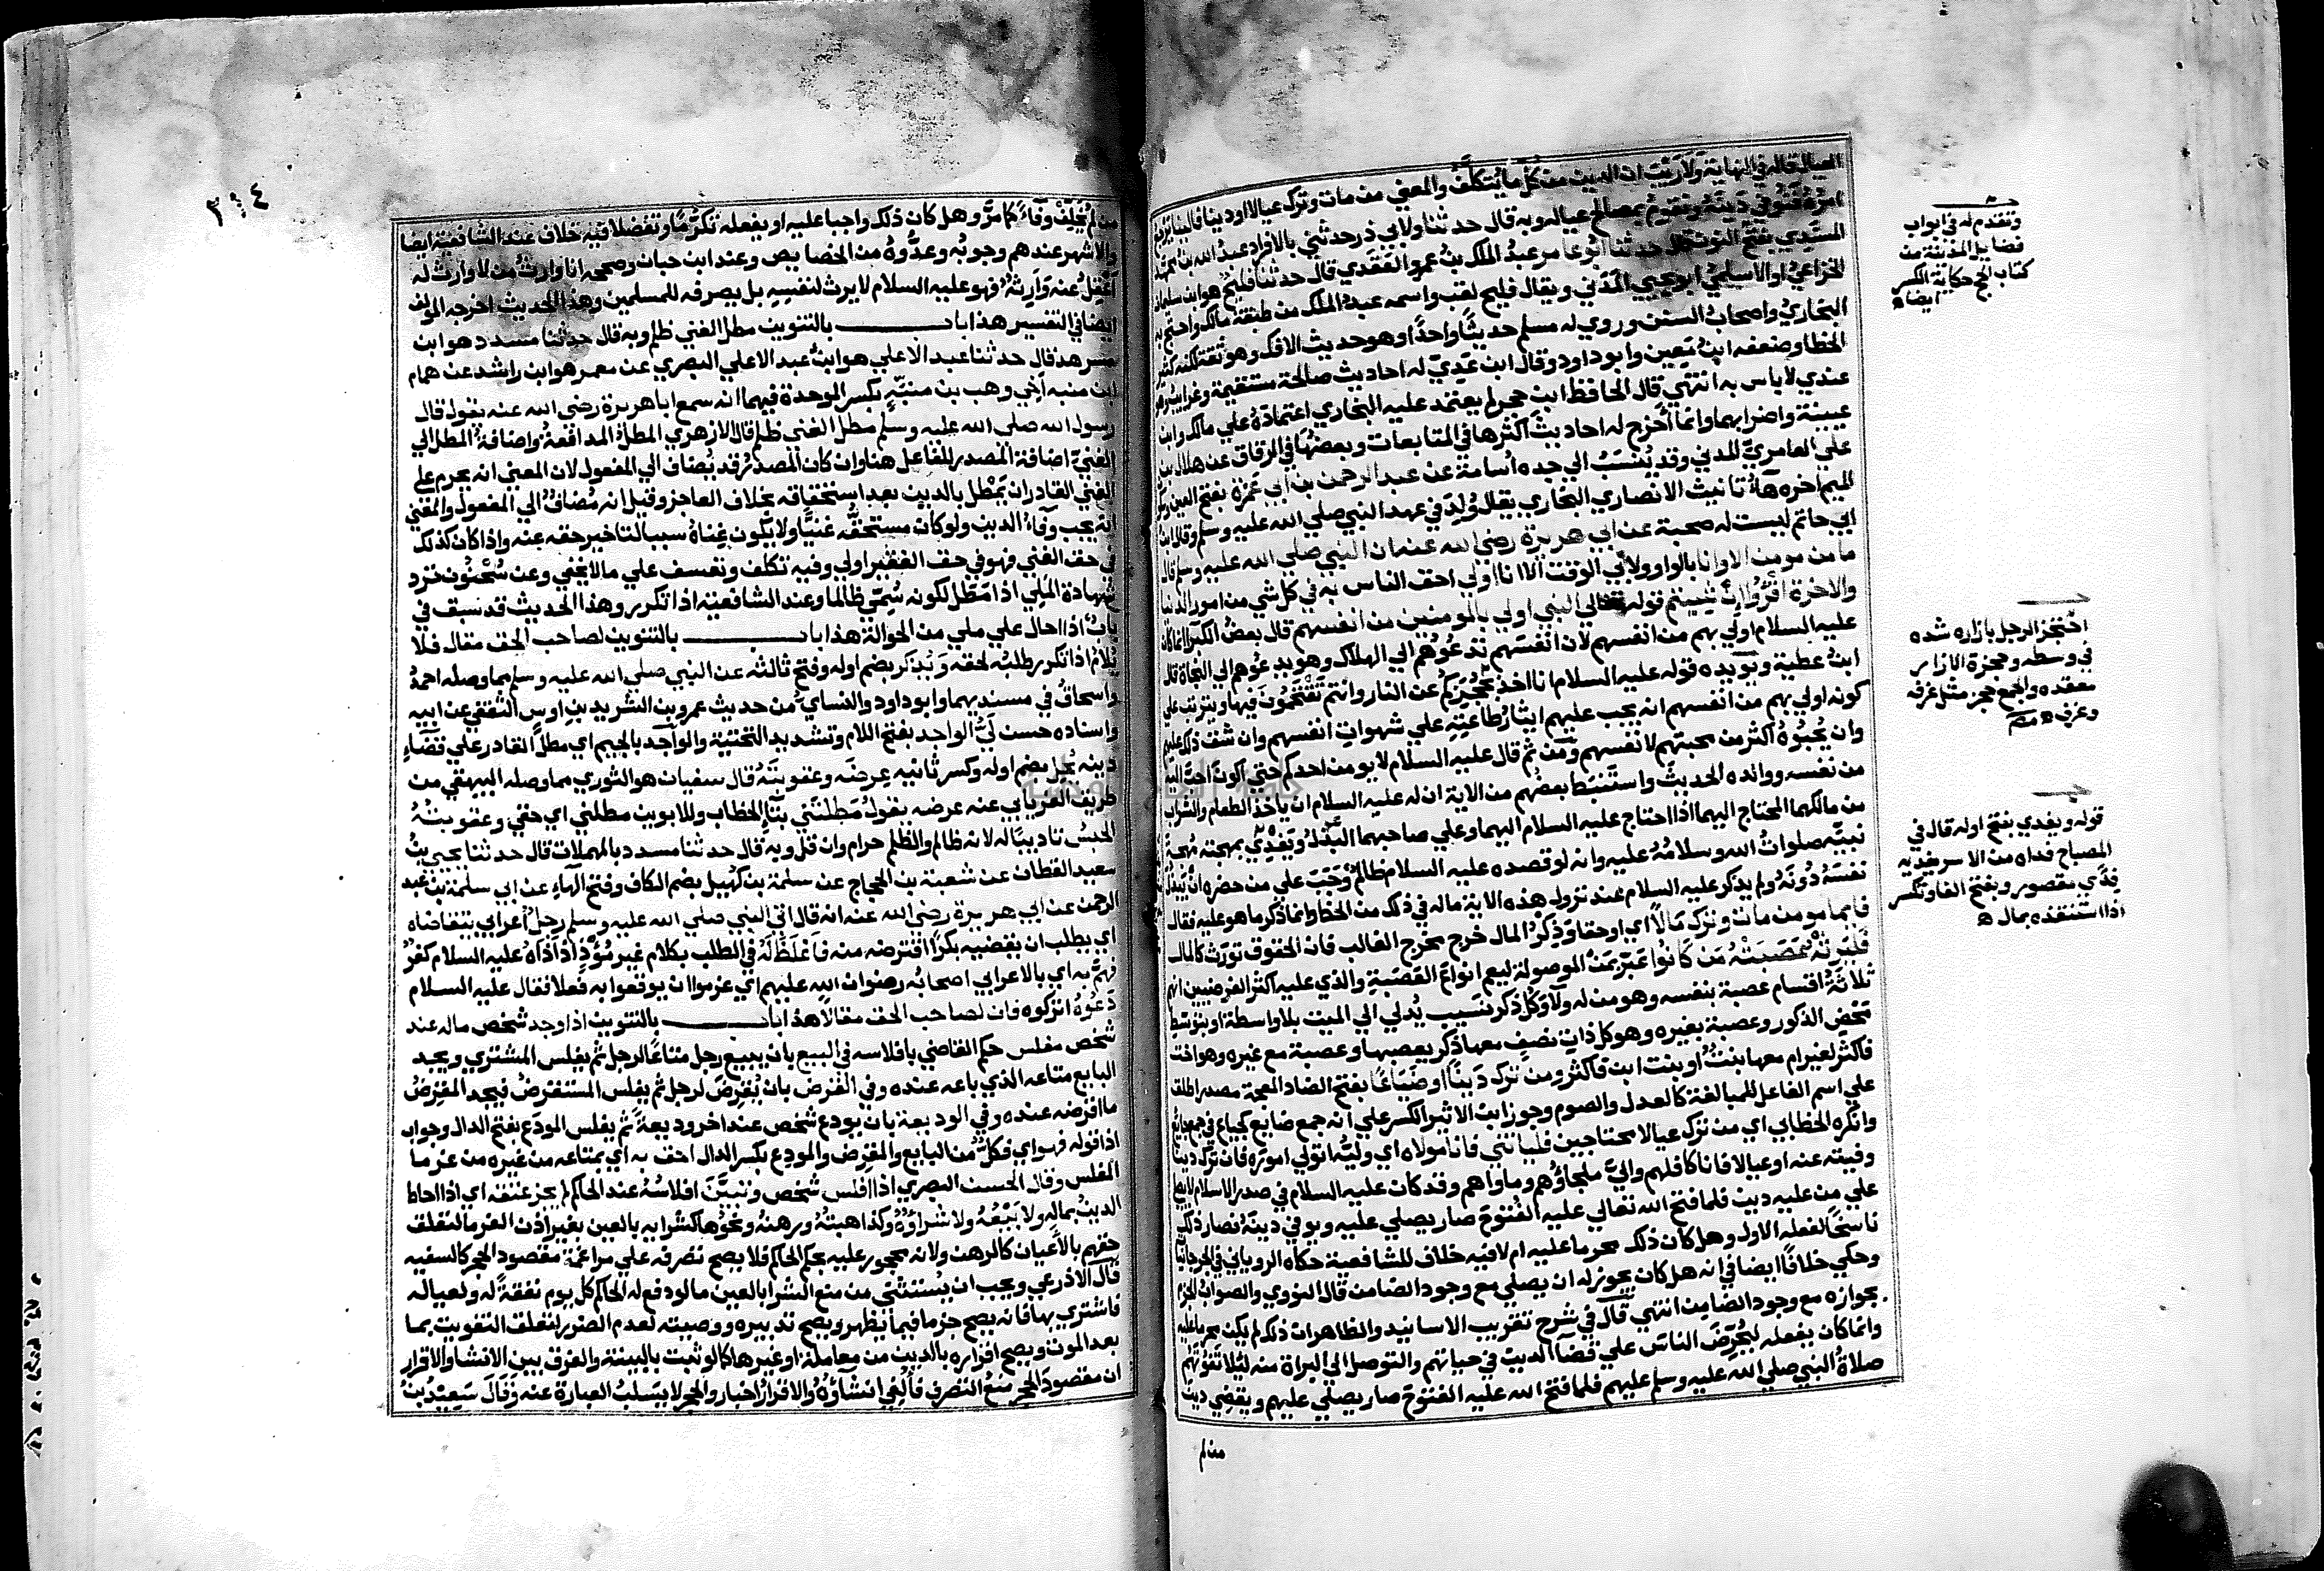 العيال قاله في النهاية ولا ريب ان الدين من كل ما يتكلف والمعني من مات وترك عيالا او دينا فالينا نرجع
امره فنوفي دينه ونقوم بمصالح عياله وبه قال حدثنا ولابي ذر حدثني بالافراد عبد الله بن محمد
المسندي بفتح النون قال حدثنا ابو عامر عبد الملك بن عمرو العقدي قال حدثنا فليح هو ابن سليمان
الخزاعي او الاسلمي ابو يحيي المدني ويقال فليح لقب واسمه عبد الملك من طبقة مالك واحتج به
البخاري واصحاب السنن وروي له مسلم حديثا واحدا وهو حديث الافك وهو ثقة لكنه كثير
الخطا وضعفه ابن معين وابو داود وقال ابن عدي له احاديث صالحة مستقيمة وغرايب وهو
عندي لا باس به انتهي قال الحافظ ابن حجر لم يعتمد عليه البخاري اعتماده علي مالك وابن
عيينة واضرابهما وانما أخرج له احاديث أكثرها في المتابعات وبعضها في الرقاق عن هلال بن
علي العامري المدني وقد ينسب الي جده اسامة عن عبد الرحمن بن ابي عمرة بفتح العين وسكون
الميم اخره هاء تانيث الانصاري البخاري يقال ولد في عهد النبي صلي الله عليه وسلم وقال ابن
ابي حاتم ليست له صحبة عن ابي هريرة رضي الله عنه ان النبي صلي الله عليه وسلم قال
ما من مومن الا وانا بالواو ولابي الوقت الا انا اولي احق الناس به في كل شي من امور الدنيا
والاخرة اقرؤا ان شيتم قوله تعالي النبي اولي بالمومنين من انفسهم قال بعض الكبرا انما كان
عليه السلام اولي بهم من انفسهم لان انفسهم تدعوهم الي الهلاك وهو يدعوهم الي النجاة قال
ابن عطية ويويده قوله عليه السلام انا اخذ بحجزكم عن النار وانتم تقتحمون فيها ويترتب علي
كونه اولي بهم من انفسهم انه يجب عليهم ايثار طاعته علي شهوات انفسهم وان شق ذلك عليهم
وان يحبوه اكثر من محبتهم لانفسهم ومن ثم قال عليه السلام لا يومن احدكم حتي اكون احب اليه
من نفسه وولده الحديث واستنبط بعضهم من الاية ان له عليه السلام ان ياخذ الطعام والشراب
من مالكهما المحتاج اليهما اذا احتاج عليه السلام اليهما وعلي صاحبهما البذل ويفدي بمهجته مهجة
نبيه صلوات الله وسلامه عليه وانه لو قصده عليه السلام ظالم وجب علي من حضره ان يبذل
نفسه دونه ولم يذكر عليه السلام عند نزول هذه الاية ماله في ذلك من الحظ وانما ذكر ما هو عليه فقال
فايما مومن مات وترك مالا اي او حقا وذكر المال خرج مخرج الغالب فان الحقوق تورث كالمال
فليرثه عصبته من كانوا عبر بمن الموصولة ليعم انواع العصبة والذي عليه اكثر الفرضيين انهم
ثلاثة اقسام عصبة بنفسه وهو من له ولا وكل ذكر نسيب يدلي الي الميت بلا واسطة او بتوسط
محض الذكور وعصبة بغيره وهو كل ذات نصف معها ذكر يعصبها وعصبة مع غيره وهو اخت
فاكثر لغير ام معها بنت او بنت ابن فاكثر ومن ترك دينا او ضياعا بفتح الضاد المعجمة مصدر اطلق
علي اسم الفاعل للمبالغة كالعدل والصوم وجوز ابن الاثير الكسر علي انه جمع ضايع كجياع في جمع جايع
وانكره الخطابي اي من ترك عيالا محتاجين فلياتني فانا مولاه اي وليه اتولي اموره فان ترك دينا
وفيته عنه او عيالا فانا كافلهم والي ملجاؤهم وماواهم وقد كان عليه السلام في صدر الاسلام لا يصلي
علي من عليه دين فلما فتح الله تعالي عليه الفتوح صار يصلي عليه ويوفي دينه فصار ذلك
ناسخا لفعله الاول وهل كان ذلك محرما عليه ام لا فيه خلاف للشافعية حكاه الروياني في الجرجانيات
وحكي خلافا ايضا في انه هل كان يجوز له ان يصلي مع وجود الضامن قال النووي والصواب الجزم
بجوازه مع وجود الضامن انتهي قال في شرح تقريب الاسانيد والظاهر ان ذلك لم يكن محرما عليه
وانما كان يفعله ليحرض الناس علي قضاء الدين في حياتهم والتوصل الي البراة منه ليلا تفوتهم
صلاة النبي صلي الله عليه وسلم عليهم فلما فتح الله عليه الفتوح صار يصلي عليهم ويقضي دين
من لم
وتقدم له في ابواب
فضايل المدينة من
كتاب الحج حكاية الكسر
ايضا ه
احتجز الرجل بازاره شده
في وسطه وحجزة الازار
معقده والجمع حجز مثل غرفة
وغرف ه
قوله ويفدي بفتح اوله قال في
المصباح فداه من الاسر يفديه
فدي مقصور وبفتح الفا وتكسر
اذا استنقذه بمال ه
٣٠٤
من لم يخلف وفاء كما مر وهل كان ذلك واجبا عليه او يفعله تكرما وتفضلا فيه خلاف عند الشافعية ايضا
والاشهر عندهم وجوبه وعدوه من الخصايص وعند ابن حبان وصححه انا وارث من لا وارث له
اعقل عنه وارثه فهو عليه السلام لا يرث لنفسه بل يصرفه للمسلمين وهذا الحديث اخرجه المولف
ايضا في التفسير هذا باب بالتنوين مطل الغني ظلم وبه قال حدثنا مسدد هو ابن
مسرهد قال حدثنا عبد الاعلي هو ابن عبد الاعلي البصري عن معمر هو ابن راشد عن همام
ابن منبه اخي وهب بن منبه بكسر الموحدة فيهما انه سمع ابا هريرة رضي الله عنه يقول قال
رسول الله صلي الله عليه وسلم مطل الغني ظلم قال الازهري المطل المدافعة واضافة المطل الي
الغني اضافة المصدر للفاعل هنا وان كان المصدر قد يضاف الي المفعول لان المعني انه يحرم علي
الغني القادر ان يمطل بالدين بعد استحقاقه بخلاف العاجز وقيل انه مضاف الي المفعول والمعني
انه يجب وفاء الدين ولو كان مستحقه غنيا ولا يكون غناه سببا لتاخير حقه عنه واذا كان كذلك
في حق الغني فهو في حق الفقير اولي وفيه تكلف وتعسف علي ما لا يخفي وعن سحنون ترد
شهادة الملي اذا مطل لكونه سمي ظالما وعند الشافعية اذا تكرر وهذا الحديث قد سبق في
باب اذا احال علي ملي من الحوالة هذا باب بالتنوين لصاحب الحق مقال فلا
يلام اذا تكرر طلبه لحقه ويذكر بضم اوله وفتح ثالثه عن النبي صلي الله عليه وسلم مما وصله احمد
واسحاق في مسنديهما وابو داود والنساي من حديث عمرو بن الشريد بن اوس الثقفي عن ابيه
واسناده حسن لي الواجد بفتح اللام وتشديد التحتية والواجد بالجيم اي مطل القادر علي قضاء
دينه يحل بضم اوله وكسر ثانيه عرضه وعقوبته قال سفيان هو الثوري مما وصله البيهقي من
طريق الفريابي عنه عرضه يقول مطلتني بتاء الخطاب وللابوين مطلني اي حقي وعقوبته
الحبس تاديبا له لانه ظالم والظلم حرام وان قل وبه قال حدثنا مسدد بالمهملات قال حدثنا يحيي بن
سعيد القطان عن شعبة بن الحجاج عن سلمة بن كهيل بضم الكاف وفتح الهاء عن ابي سلمة بن عبد
الرحمن عن ابي هريرة رضي الله عنه انه قال اتي النبي صلي الله عليه وسلم رجل اعرابي يتقاضاه
اي يطلب ان يقضيه بكرا اقترضه منه فاغلظ له في الطلب بكلام غير مؤذ اذ اذاه عليه السلام كفر
فهم به اي بالاعرابي اصحابه رضوان الله عليهم اي عزموا ان يوقعوا به فعلا فقال عليه السلام
دعوه اتركوه فان لصاحب الحق مقالا هذا باب بالتنوين اذا وجد شخص ماله عند
شخص مفلس حكم القاضي بافلاسه في البيع بان يبيع رجل متاعا لرجل ثم يفلس المشتري ويجد
البايع متاعه الذي باعه عنده وفي القرض بان يقرض لرجل ثم يفلس المستقرض فيجد المقرض
ما اقرضه عنده وفي الوديعة بان يودع شخص عند اخر وديعة ثم يفلس المودع بفتح الدال وجواب
اذا قوله فهو اي فكل من البايع والمقرض والمودع بكسر الدال احق به اي بمتاعه من غيره من غرما
المفلس وقال الحسن البصري اذا افلس شخص وتبين افلاسه عند الحاكم لم يجز عتقه اي اذا احاط
الدين بماله ولا بيعه ولا شراؤه وكذا هبته ورهنه ونحوها كشرايه بالعين بغير اذن الغرما لتعلق
حقهم بالاعيان كالرهن ولانه محجور عليه بحكم الحاكم فلا يصح تصرفه علي مراغمة مقصود الحجر كالسفيه
قال الاذرعي ويجب ان يستثني من منع الشرا بالعين ما لو دفع له الحاكم كل يوم نفقة له ولعياله
فاشتري بها فانه يصح جزما فيما يظهر ويصح تدبيره ووصيته لعدم الضرر لتعلق التفويت بما
بعد الموت ويصح اقراره بالدين من معاملة او غيرها كما لو ثبت بالبينة والفرق بين الانشا والاقرار
ان مقصود الحجر منع التصرف فألغي انشاؤه والاقرار اخبار والحجر لا يسلب العبارة عنه وقال سعيد بن